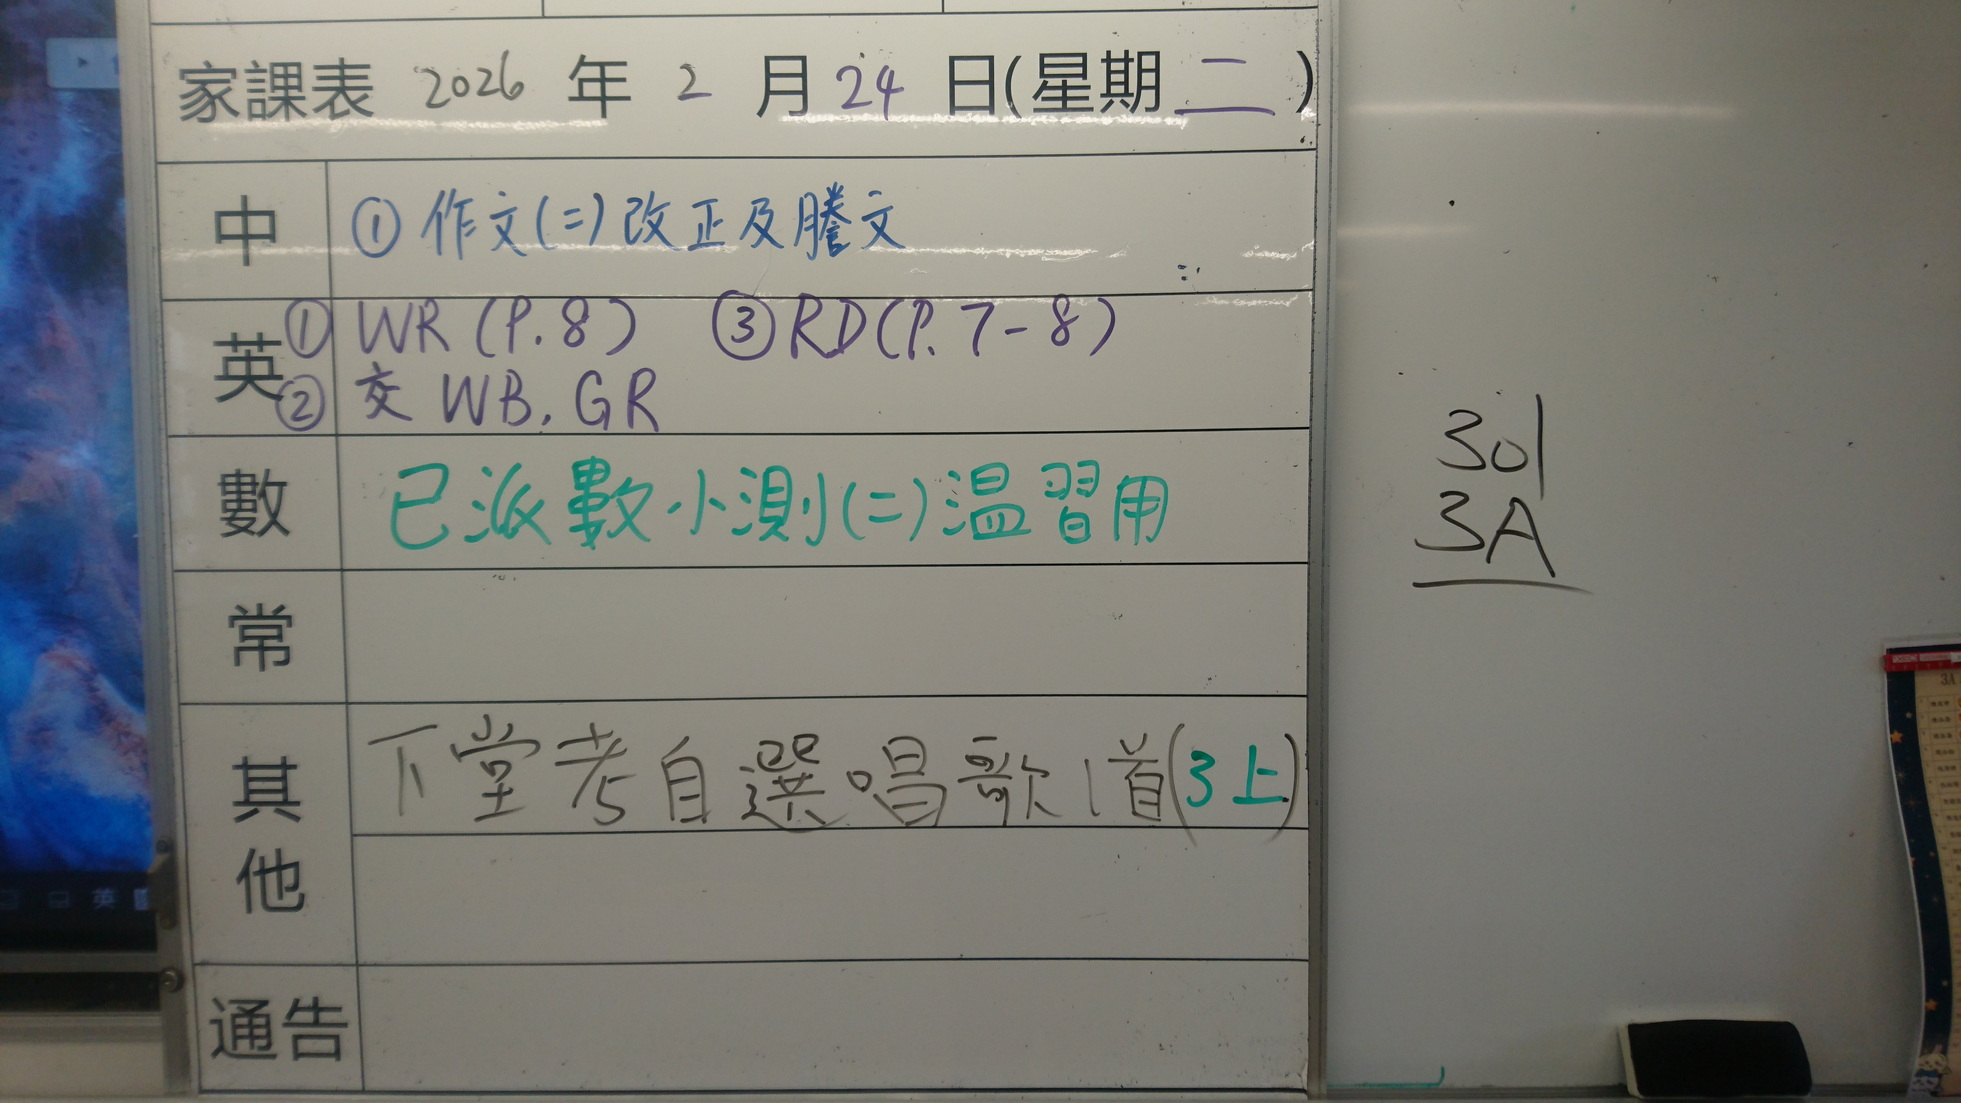 家課表 2026 年 2 月 24 日(星期 二 )
中 ① 作文(二)改正及謄文
英 ① WR (P.8) ③ RD (P.7-8)
② 交 WB, GR
數 已派數小測(二)温習用
常
其他 下堂考自選唱歌1首(3上)
通告
301
3A
英
3A